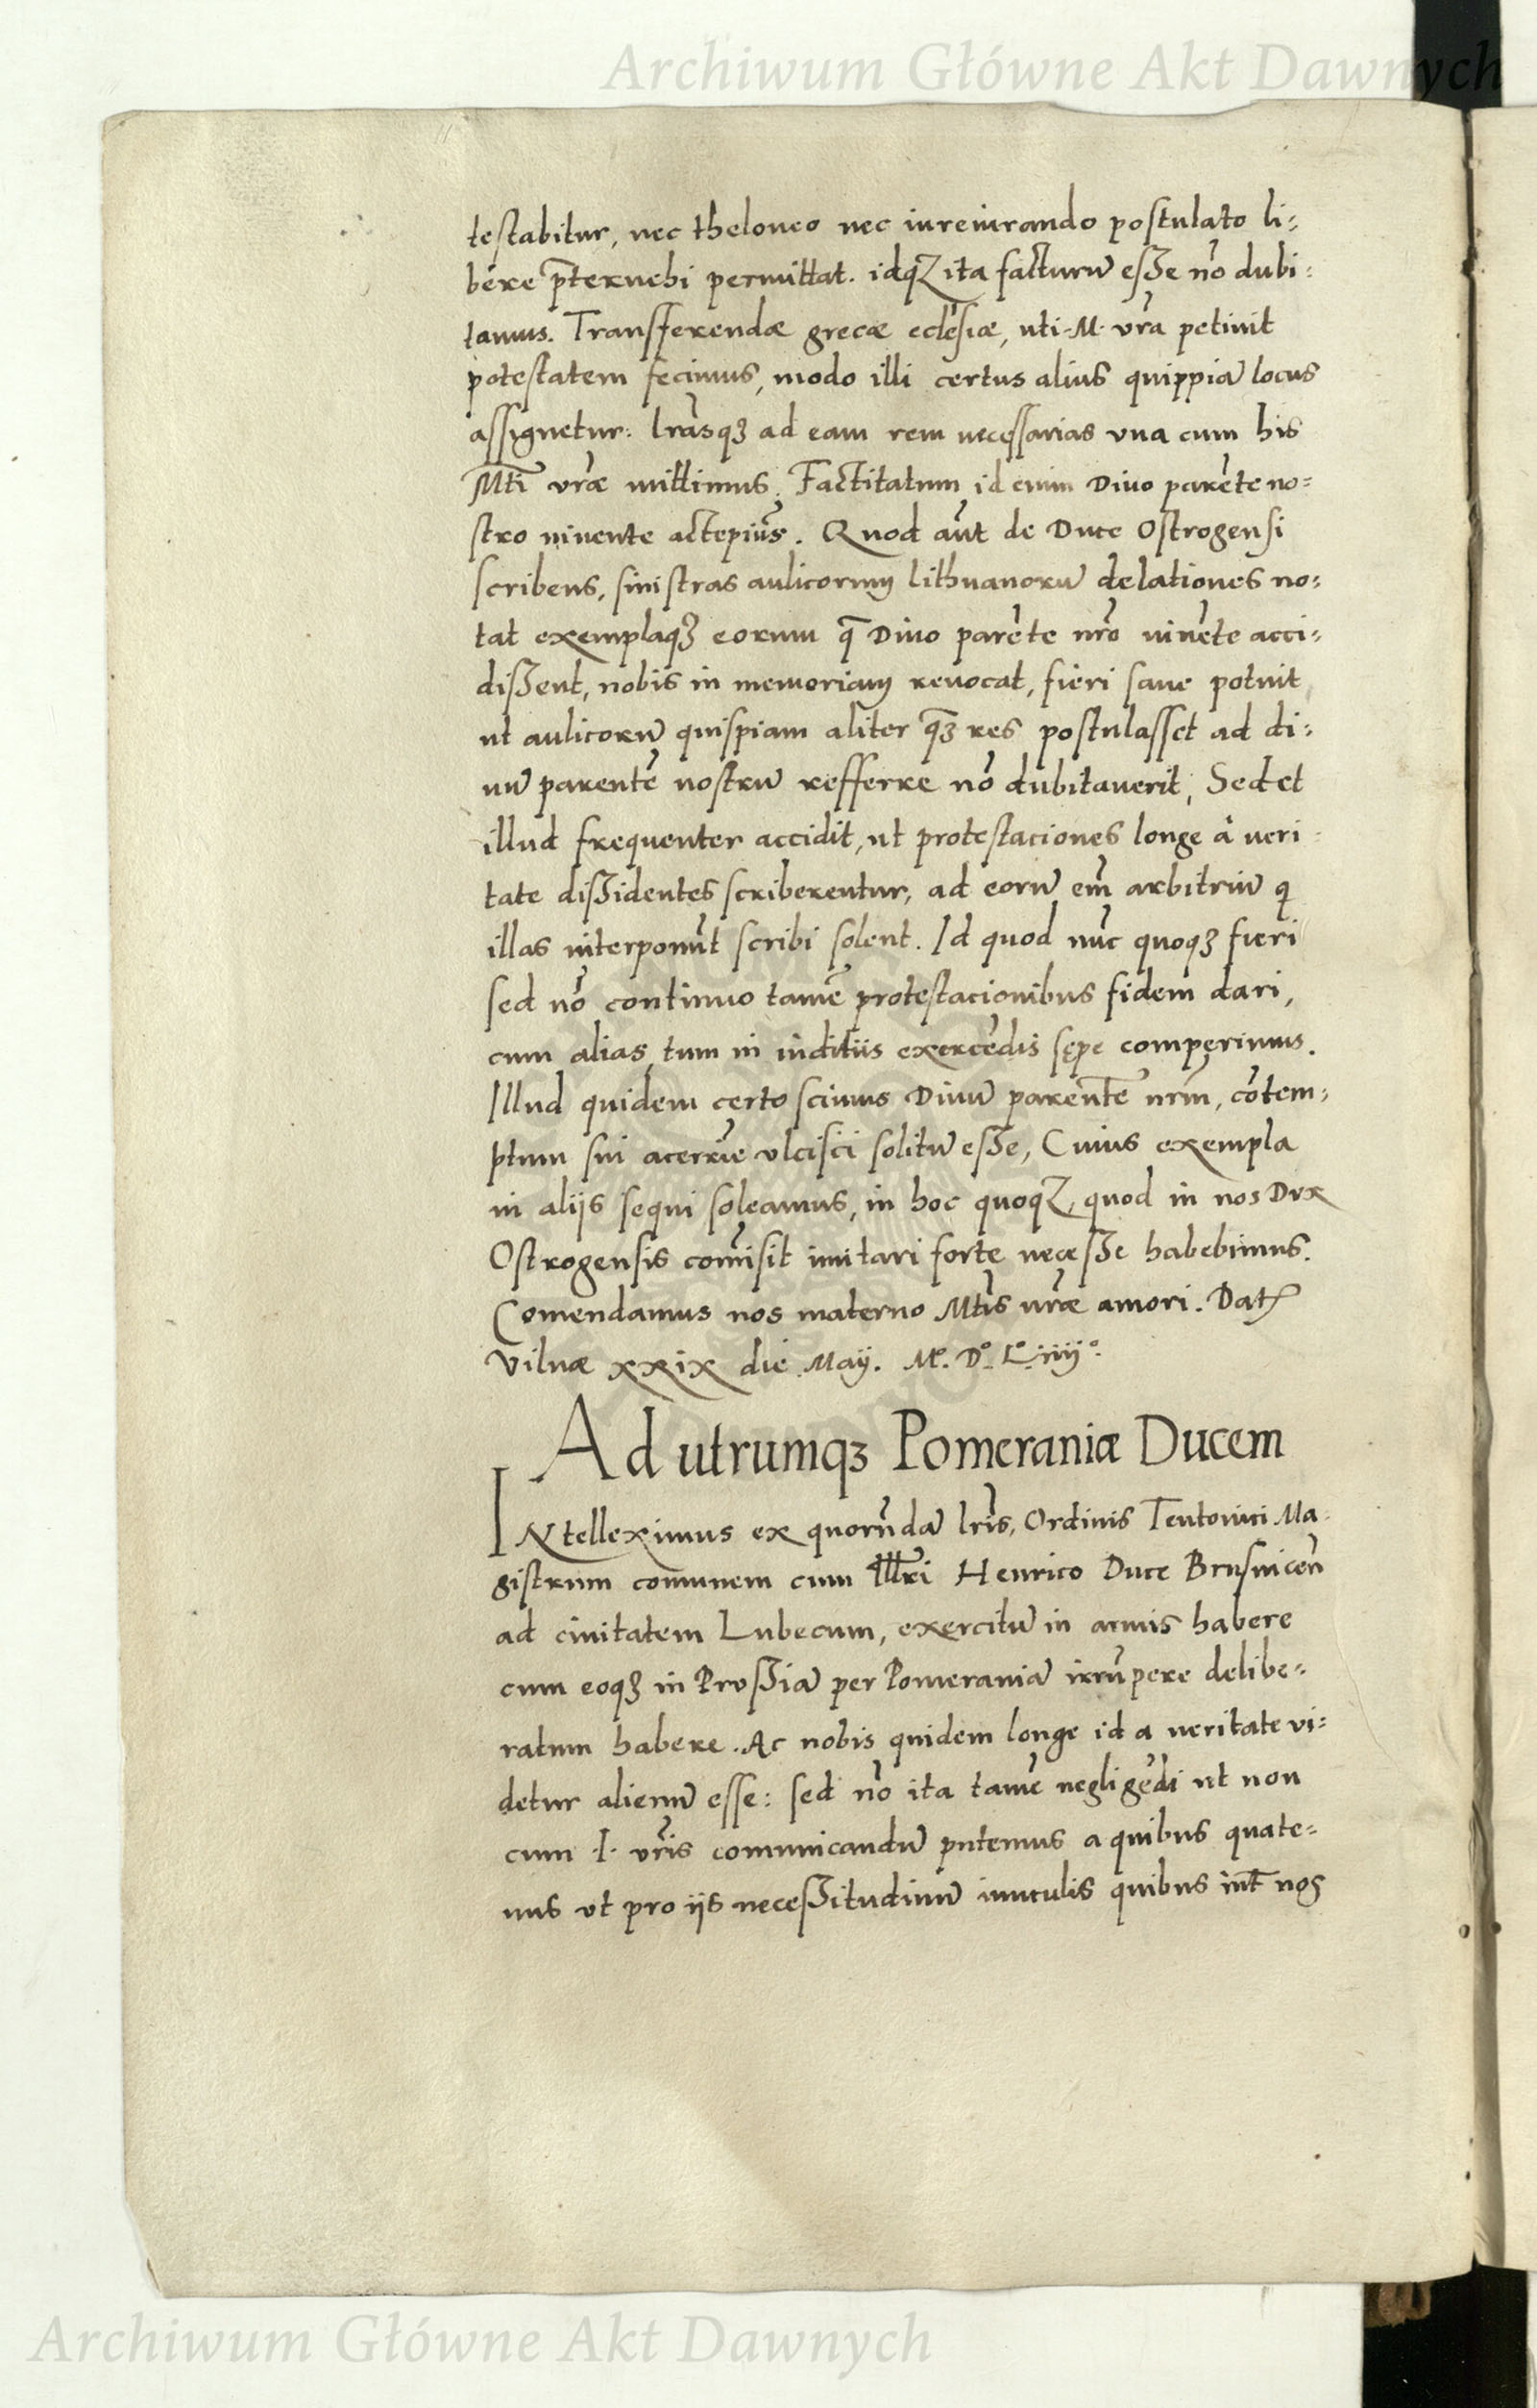 Archiwum Główne Akt Dawnych
testabitur, nec theloneo nec iureiurando postulato li-
bere p̄teruehi permittat. idq ita facturū esse nō dubi-
tamus. Transferendæ grecæ eclesiæ, uti M. vrā petiuit
potestatem fecimus, modo illi certus alius quippiā locus
assignetur: lrāsqꝫ ad eam rem necessarias vna cum his
Mti vræ mittimus. Factitatum id enim Diuo parēte no-
stro uiuente accepimus. Quod aūt de Duce Ostrogensi
scribens, sinistras aulicorum lithuanorū delationes no-
tat exemplaqꝫ eorum q̄ Diuo parēte nrō uiuēte acci-
dissent, nobis in memoriam reuocat, fieri sane potuit
ut aulicorū quispiam aliter q̄ꝫ res postulasset ad di-
uū parentē nostrū refferre nō dubitauerit, Sed et
illud frequenter accidit, ut protestaciones longe à ueri-
tate dissidentes scriberentur, ad eorū em̄ arbitriū q
illas interponūt scribi solent. Id quod nūc quoqꝫ fieri
sed nō continuo tamē protestacionibus fidem dari,
cum alias, tum in iuditiis exercēdis sępe comperimus.
Illud quidem certo scimus Diuū parentē nrm̄, cōtem-
ptum sui acerrīe vlcisci solitū esse, Cuius exempla
in aliis sequi soleamus, in hoc quoq, quod in nos Dux
Ostrogensis com̄isit imitari forte necesse habebimus.
Comendamus nos materno Mtis uræ amori. Datꝝ
Vilnæ xxix die Maij. Mᵒ. Dᵒ. Lᵒ. iiijᵒ.
Ad utrumqꝫ Pomeraniæ Ducem
INtelleximus ex quorūdā lrīs, Ordinis Teutonici Ma-
gistrum comunem cum Illri Henrico Duce Brusuicen̄
ad ciuitatem Lubecum, exercitū in armis habere
cum eoqꝫ in Prussiā per Pomeraniā irrūpere delibe-
ratum habere. Ac nobis quidem longe id a ueritate vi-
detur alienū esse: sed nō ita tamē negligēdi ut non
cum .I. vrīs comunicandū putemus a quibus quate-
nus vt pro iis necessitudinū uinculis quibus int̄ nos
Archiwum Główne Akt Dawnych